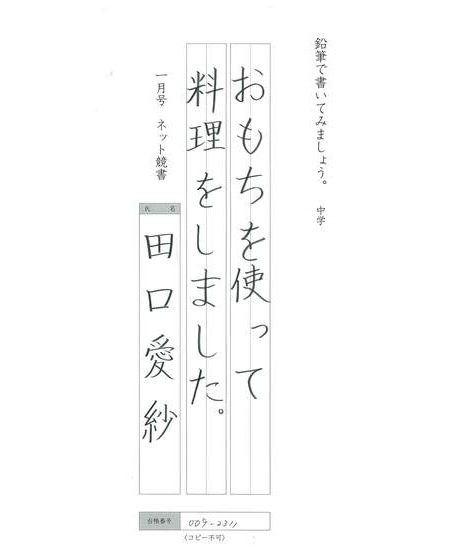 鉛筆で書いてみましょう。 中学
おもちを使って
料理をしました。
一月号 ネット競書
氏名
田口愛紗
合格番号 009-2311
(コピー不可)